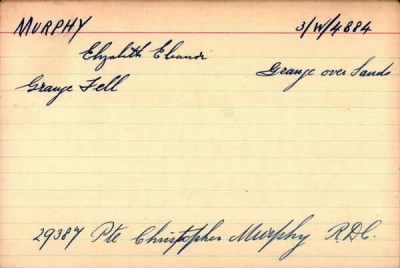 MURPHY 3/W/4884
Elizabeth
Grange over Sands
Grange Fell
29387 Pte Christopher Murphy R.D.C.